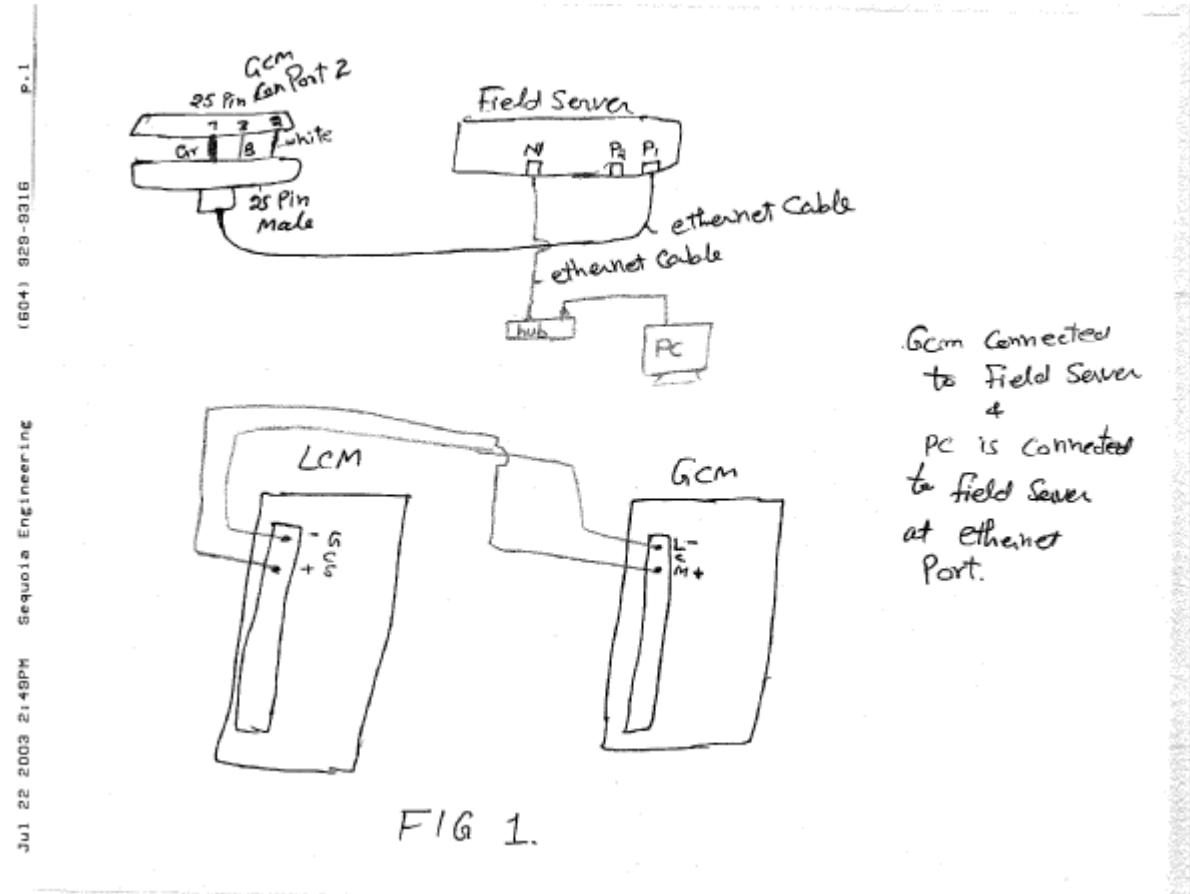 Jul 22 2003 2:49PM Sequoia Engineering (604) 929-9316 p.1
Gcm
25 Pin Con Port 2
7 2 3
Gr B white
25 Pin
Male
Field Server
N1 P2 P1
ethernet Cable
ethernet Cable
hub
PC
Gcm Connected
to Field Server
&
PC is Connected
to field Server
at ethernet
Port.
LCM
-
+
GCM
L -
C
M +
FIG 1.